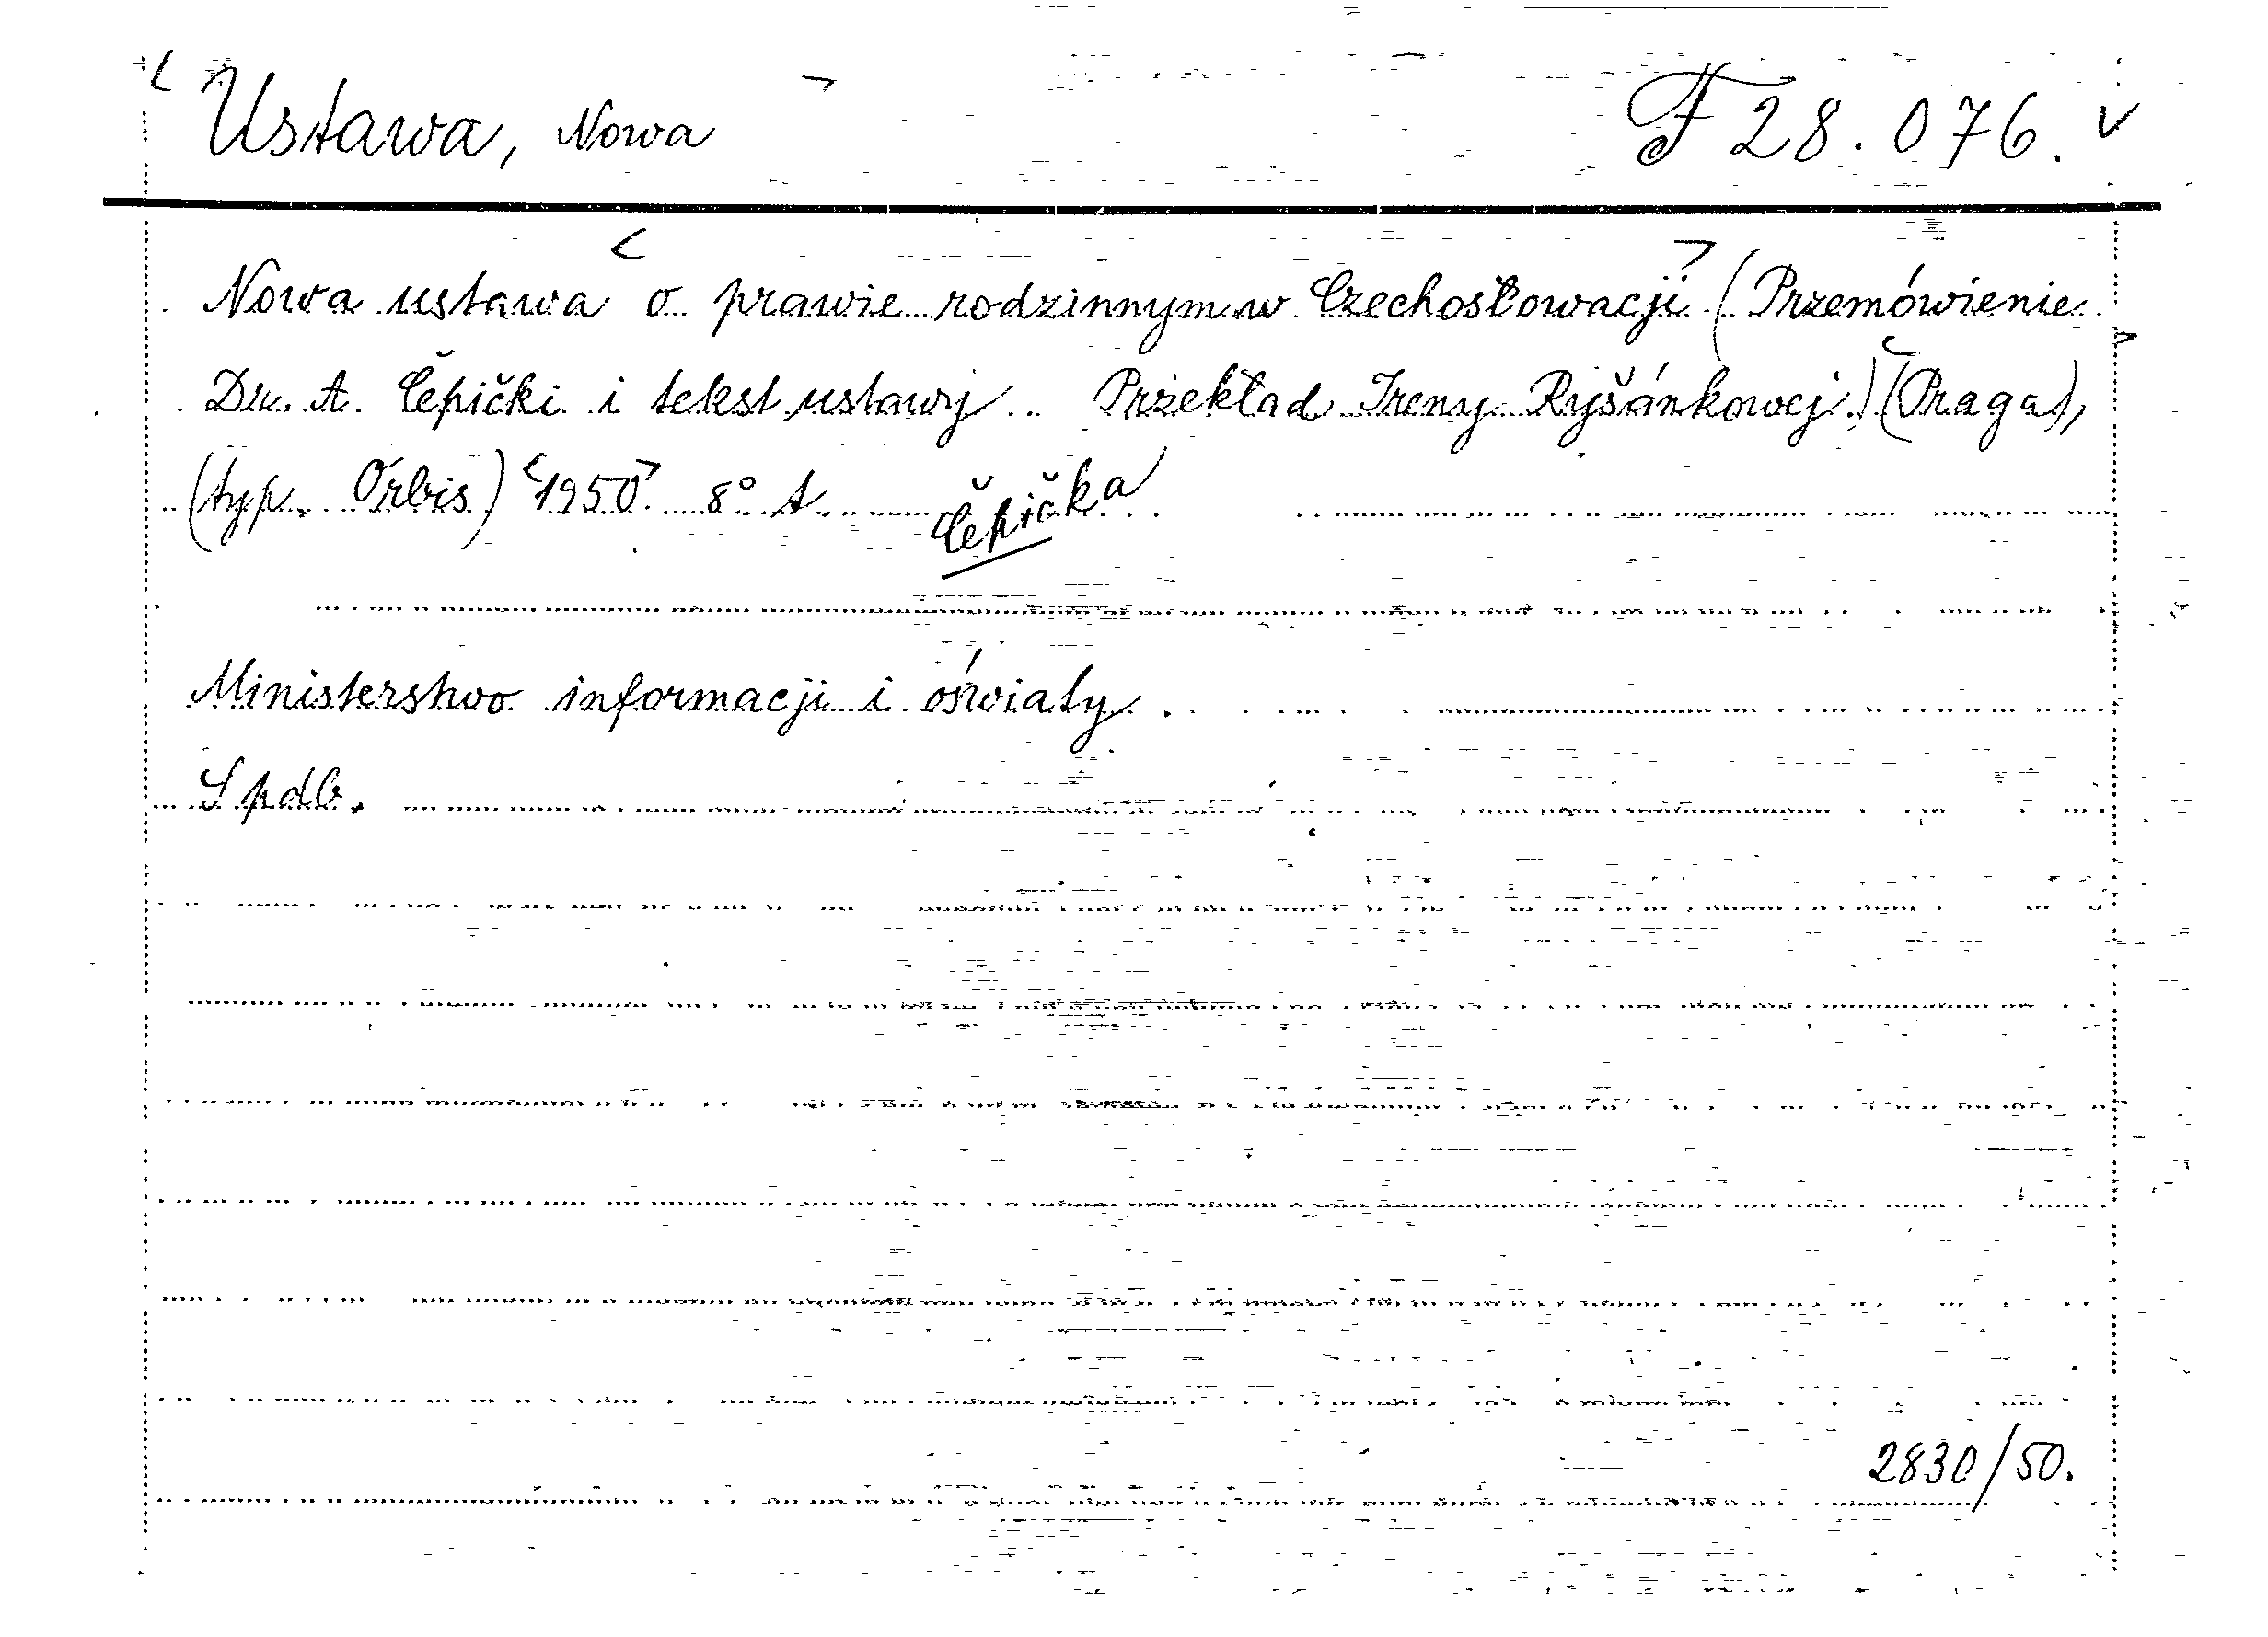 < Ustawa, Nowa > F 28.076. v
Nowa ustawa < o prawie rodzinnym w Czechosłowacji > (Przemówienie
Dr. A. Čepički i tekst ustawy. Przekład Ireny Ryšánkowej.) (Praga),
(typ. Orbis) <1950> 8° A. Čepička
Ministerstwo informacji i oświaty.